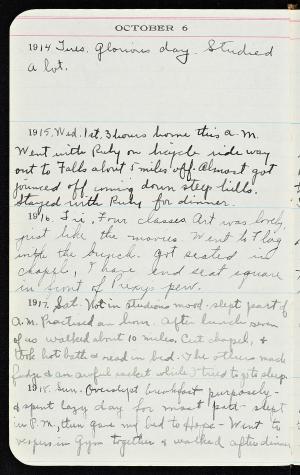 OCTOBER 6
1914 Tues. Glorious day. Studied
a lot.
1915. Wed. 1st. 3 hours home this a.m.
Went with Ruby on bicycle ride way
out to Falls about 5 miles off. Almost got
jounced off coming down steep hills.
Stayed with Ruby for dinner.
1916. Fri. Four classes. Art was lovely,
just like the movies. Went to Flag
with the bunch. Got seated in
chapel, I have end seat square
in front of Prexy's pew.
1917. Sat. Not in studious mood. Slept part of
a.m. Practised an hour. After lunch seven
of us walked about 10 miles. Cut chapel, &
took hot bath & read in bed. The others made
fudge & an awful racket while I tried to go to sleep.
1918. Sun. Overslept breakfast purposely -
& spent lazy day for most part - slept
in P.M., then gave my bed to Hope - Went to
vespers in Gym together & walked after dinner